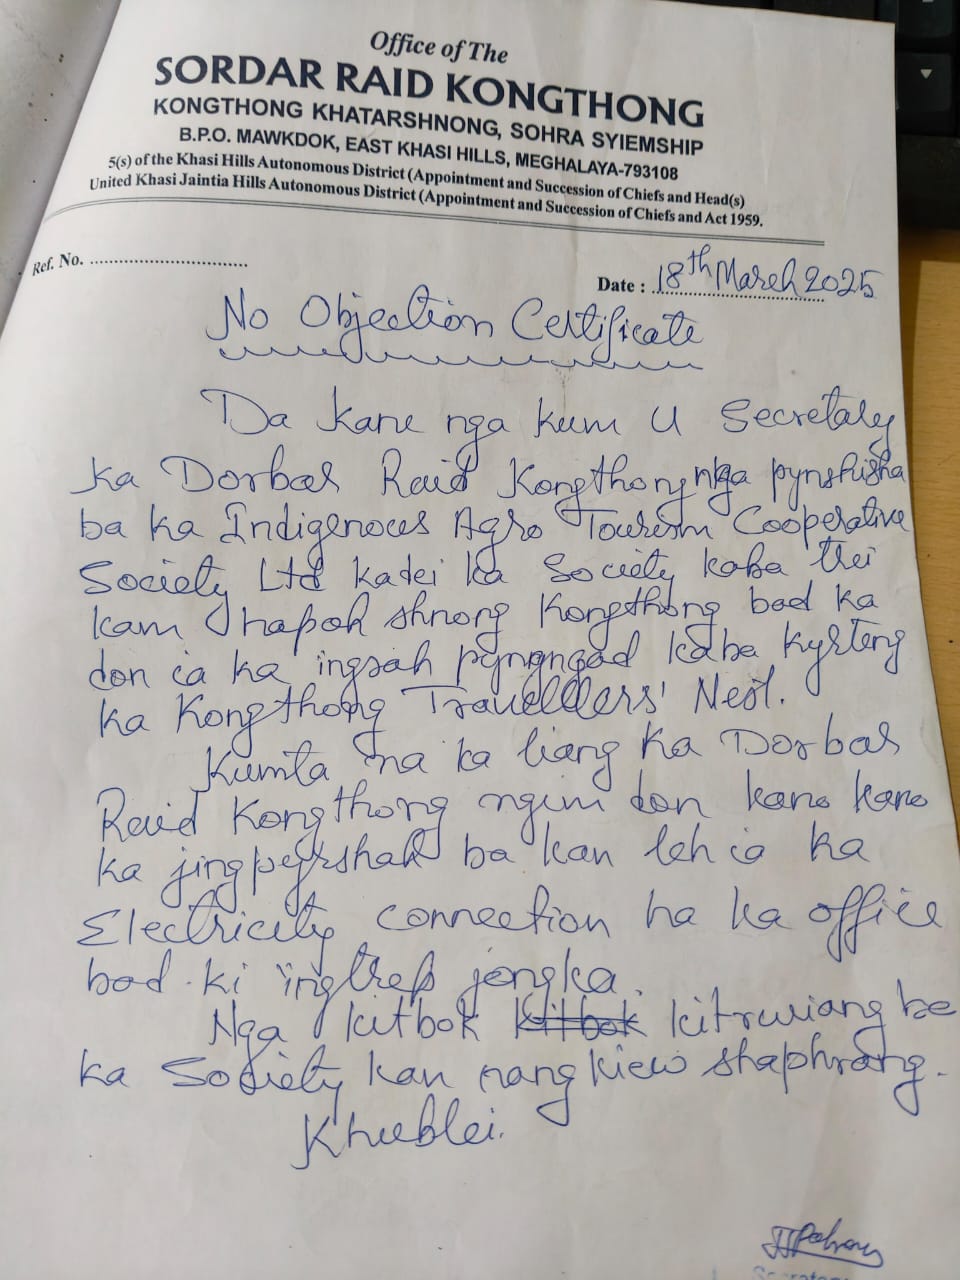 Office of The
SORDAR RAID KONGTHONG
KONGTHONG KHATARSHNONG, SOHRA SYIEMSHIP
B.P.O. MAWKDOK, EAST KHASI HILLS, MEGHALAYA-793108
5(s) of the Khasi Hills Autonomous District (Appointment and Succession of Chiefs and Head(s)
United Khasi Jaintia Hills Autonomous District (Appointment and Succession of Chiefs and Act 1959.
Ref. No. ..............................
Date : 18th March 2025
No Objection Certificate
Da kane nga kum U Secretary
ka Dorbar Raid Kongthong nga pynshisha
ba ka Indigenous Agro Tourism Cooperative
Society Ltd kadei ka Society kaba trei
kam hapoh shnong Kongthong bad ka
don ia ka ingsah pyngngad kaba kyrteng
ka Kongthong Travelllers' Nest.
Kumta na ka liang ka Dorbar
Raid Kongthong ngim don kano kano
ka jingpyrshah ba kan leh ia ka
Electricity connection ha ka office
bad ki ingtrep jongka.
Nga kitbok kitbok kitrwiang ba
ka Society kan nang kiew shaphrang.
Khublei.